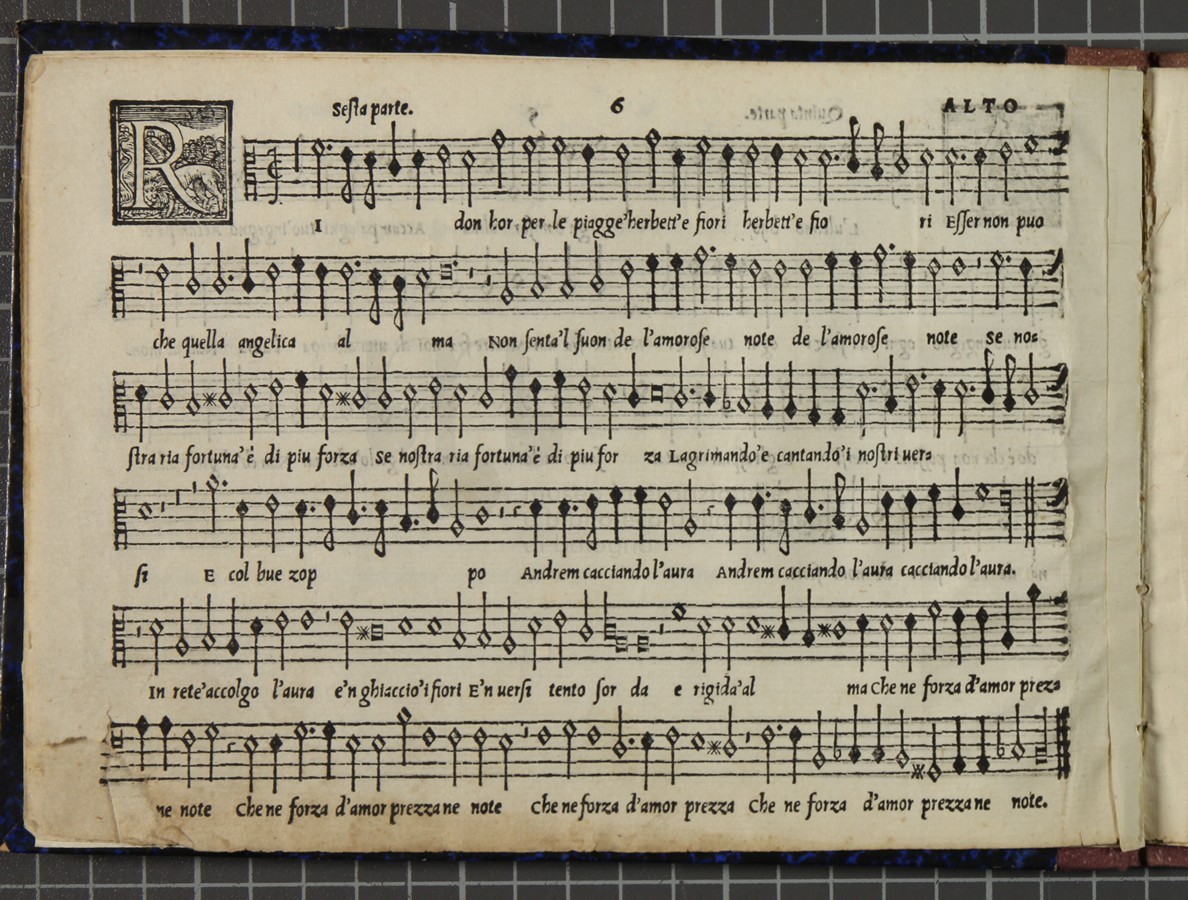 Sesta parte. 6 ALTO
R
I don hor per le piagge'herbett'e fiori herbett'e fio ri Esser non puo
che quella angelica al ma Non senta'l suon de l'amorose note de l'amorose note se nos
stra ria fortuna'è di piu forza se nostra ria fortuna'è di piu for za Lagrimando'e cantando'i nostri uers
si E col bue zop po Andrem cacciando l'aura Andrem cacciando l'aura cacciando l'aura.
In rete'accolgo l'aura e'n ghiaccio'i fiori E'n uersi tento sor da e rigida'al ma Che ne forza d'amor prezs
ne note Che ne forza d'amor prezza ne note Che ne forza d'amor prezza Che ne forza d'amor prezza ne note.